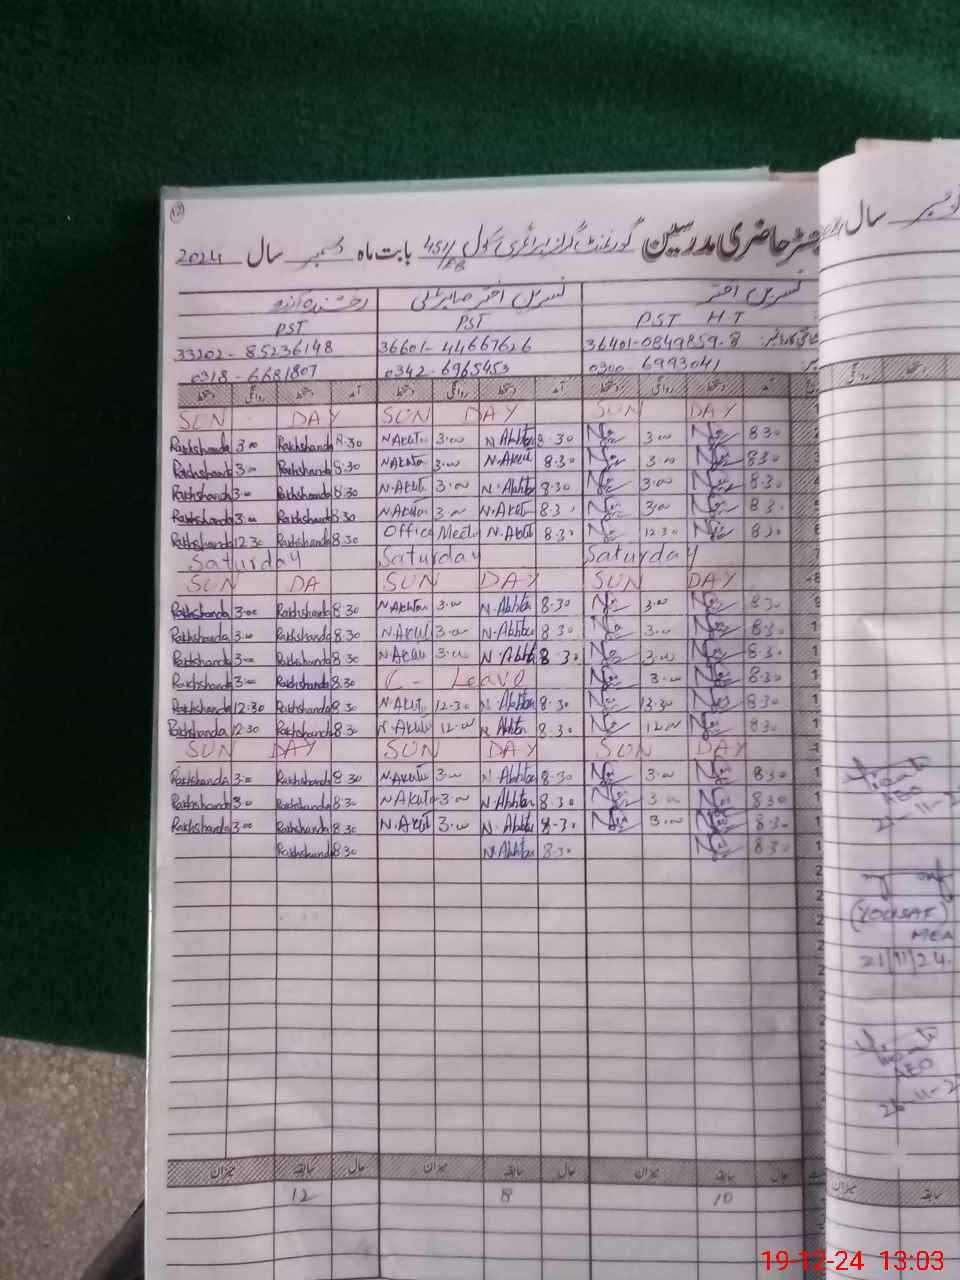 رجسٹر حاضری مدرسین گورنمنٹ گرلز پرائمری سکول 451/EB بابت ماہ دسمبر سال 2024
نسرین اختر نسرین اختر صابر علی رخشندہ
PST H.T PST PST
36401-0849859-8 36601-44667626 33202-85236148
0300-6993041 0342-6965453 0318-6681807
آمد دستخط روانگی دستخط آمد دستخط روانگی دستخط آمد دستخط روانگی دستخط
SUN DAY SUN DAY SUN DAY
Rakhshanda 3-00 Rakhshanda 8-30 N Akhtar 3-00 N Akhtar 8-30 3-00 8 30
Rakhshanda 3-00 Rakhshanda 8-30 N Akhtar 3-00 N. Akhtar 8-30 3-00 8-30
Rakhshanda 3-00 Rakhshanda 8-30 N. Akhtar 3-00 N. Akhtar 8-30 3-00 8-30
Rakhshanda 3-00 Rakhshanda 8-30 N Akhtar 3-00 N. Akhtar 8-30 3-00 8-30
Rakhshanda 12-30 Rakhshanda 8-30 Office N. Akhtar 8-30 12-30 8-30
Saturday Saturday Saturday
SUN DA SUN DAY SUN DAY
Rakhshanda 3-00 Rakhshanda 8-30 N Akhtar 3-00 N. Akhtar 8-30 3-00 8-30
Rakhshanda 3-00 Rakhshanda 8-30 N. Akhtar 3-00 N. Akhtar 8-30 3-00 8-30
Rakhshanda 3-00 Rakhshanda 8-30 N. Akhtar 3-00 N. Akhtar 8-30 3-00 8-30
Rakhshanda 3-00 Rakhshanda 8-30 C- Leave 3-00 8-30
Rakhshanda 12-30 Rakhshanda 8-30 N. Akhtar 12-30 N. Akhtar 8-30 8-30
Rakhshanda 12-30 Rakhshanda 8-30 N. Akhtar 12-00 N. Akhtar 8-30 12-00 8-30
SUN DAY SUN DAY SUN DAY
Rakhshanda 3-00 Rakhshanda 8-30 N. Akhtar 3-00 N. Akhtar 8-30 3-00 8-30
Rakhshanda 3-00 Rakhshanda 8-30 N Akhtar 3-00 N. Akhtar 8-30 3-00 8-30
Rakhshanda 3-00 Rakhshanda 8-30 N. Akhtar 3-00 N. Akhtar 8-30 3-00 8-30
Rakhshanda 8-30 N. Akhtar 8-30 8-30
حال سابقہ میزان حال سابقہ میزان حال سابقہ میزان
12 8 10
سال
AEO
(YOUSAF)
MEA
21/11/24.
AEO
19-12-24 13:03